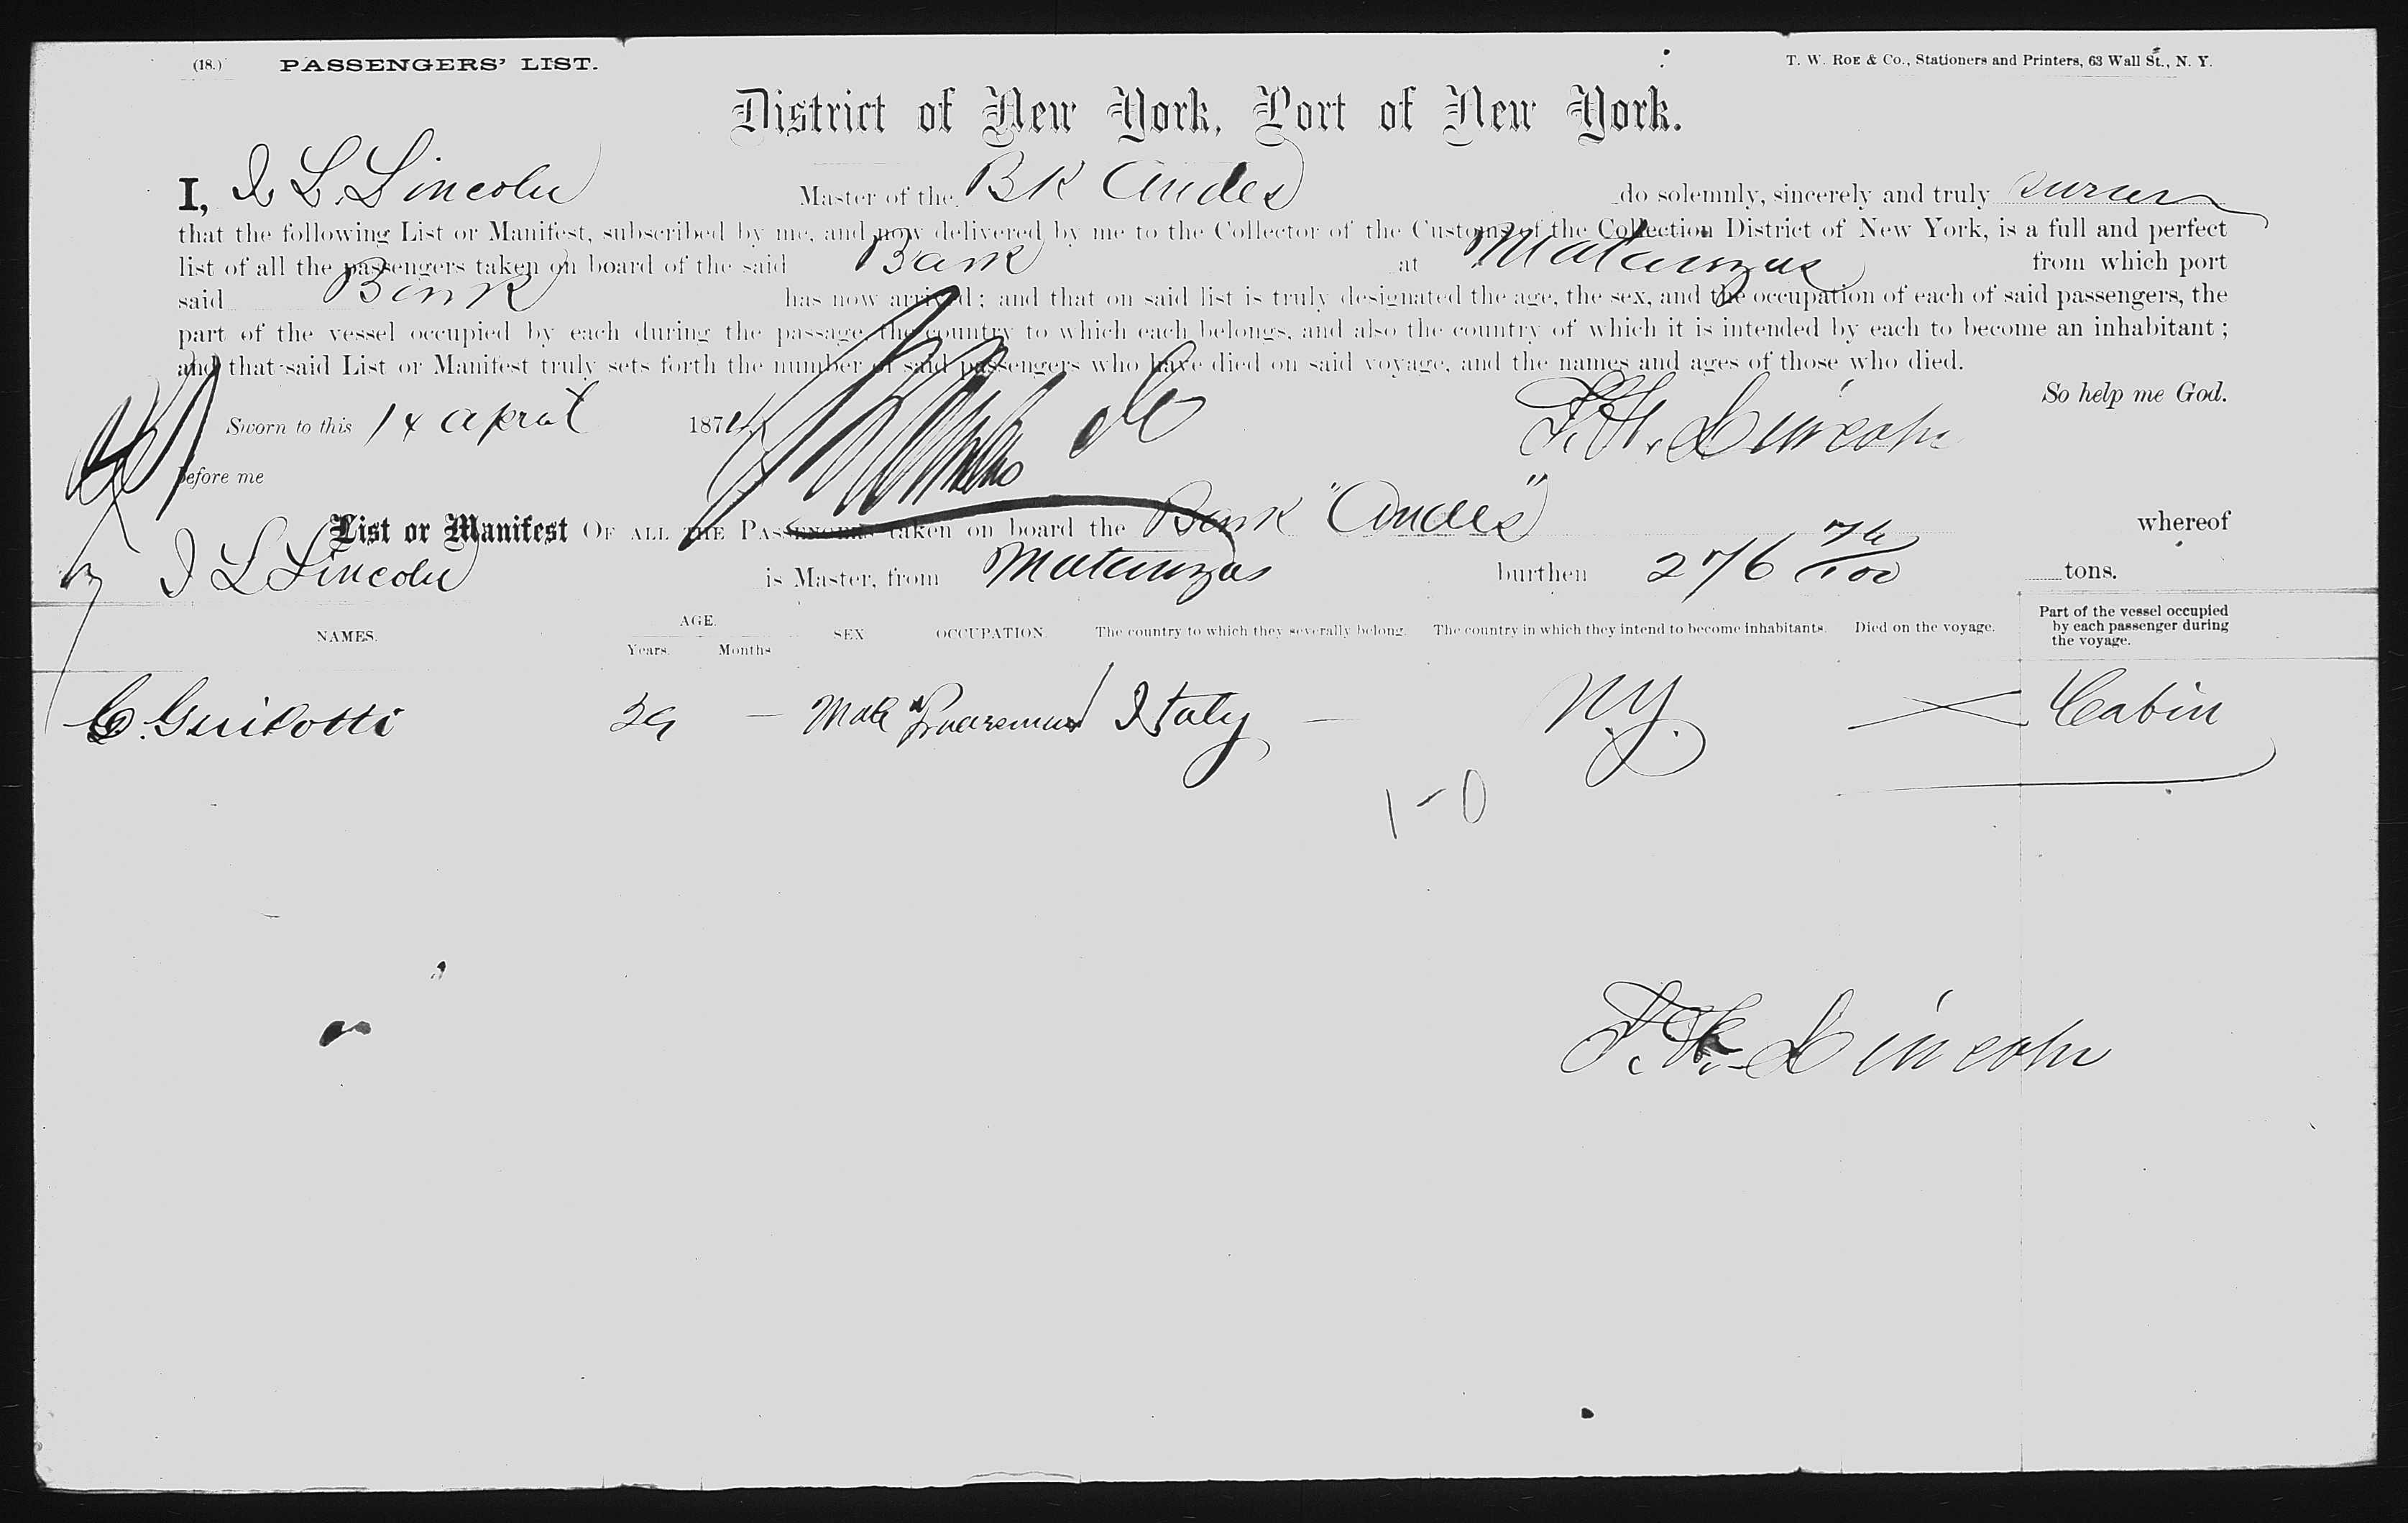 (18.) PASSENGERS' LIST.
T. W. ROE & Co., Stationers and Printers, 63 Wall St., N. Y.
District of New York, Port of New York.
I, L. Lincoln Master of the Bk Andes do solemnly, sincerely and truly swear
that the following List or Manifest, subscribed by me, and now delivered by me to the Collector of the Customs of the Collection District of New York, is a full and perfect
list of all the passengers taken on board of the said Bark at Matanzas from which port
said Bark has now arrived; and that on said list is truly designated the age, the sex, and the occupation of each of said passengers, the
part of the vessel occupied by each during the passage, the country to which each belongs, and also the country of which it is intended by each to become an inhabitant;
and that said List or Manifest truly sets forth the number of said passengers who have died on said voyage, and the names and ages of those who died.
So help me God.
Sworn to this 14 April 1874
Lincoln
before me
List or Manifest OF ALL THE PASSENGERS taken on board the Bark "Andes" whereof
L Lincoln is Master, from Matanzas burthen 276 76/100 tons.
NAMES. AGE. Years. Months SEX OCCUPATION The country to which they severally belong. The country in which they intend to become inhabitants. Died on the voyage. Part of the vessel occupied by each passenger during the voyage.
C. Guidotti 29 — Male Italy — N.Y. Cabin
1-0
Lincoln